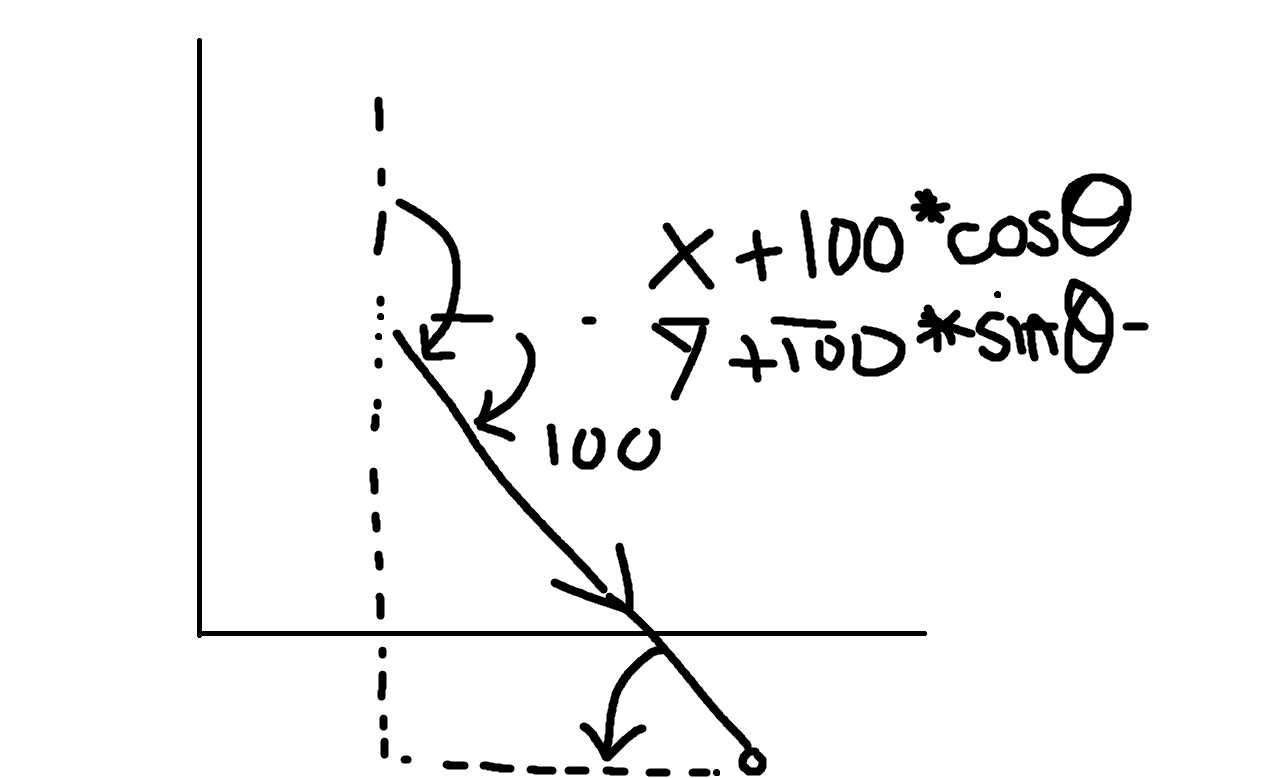 x+100*cosθ
y+100*sinθ
100